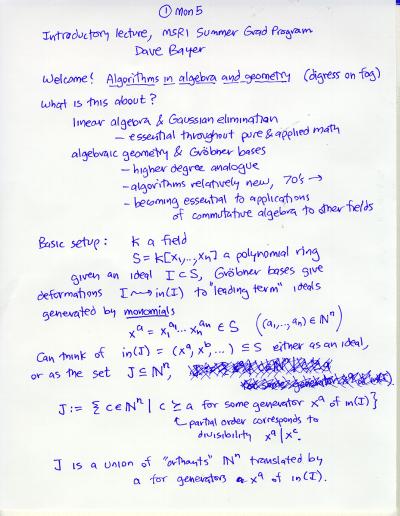 ① Mon 5
Introductory lecture, MSRI Summer Grad Program
Dave Bayer
Welcome! Algorithms in algebra and geometry (digress on fog)
What is this about?
linear algebra & Gaussian elimination
– essential throughout pure & applied math
algebraic geometry & Gröbner bases
– higher degree analogue
– algorithms relatively new, 70's →
– becoming essential to applications
of commutative algebra to other fields
Basic setup: k a field
S = k[x₁,...,xₙ] a polynomial ring
given an ideal I ⊂ S, Gröbner bases give
deformations I ⇝ in(I) to "leading term" ideals
generated by monomials
xᵃ = x₁ᵃ¹ ... xₙᵃⁿ ∈ S ((a₁,...,aₙ) ∈ ℕⁿ)
Can think of in(I) = (xᵃ, xᵇ, ...) ⊆ S either as an ideal,
or as the set J ⊆ ℕⁿ,
J := { c ∈ ℕⁿ | c ≥ a for some generator xᵃ of in(I)}
partial order corresponds to
divisibility xᵃ | xᶜ.
J is a union of "orthants" ℕⁿ translated by
a for generators xᵃ of in(I).